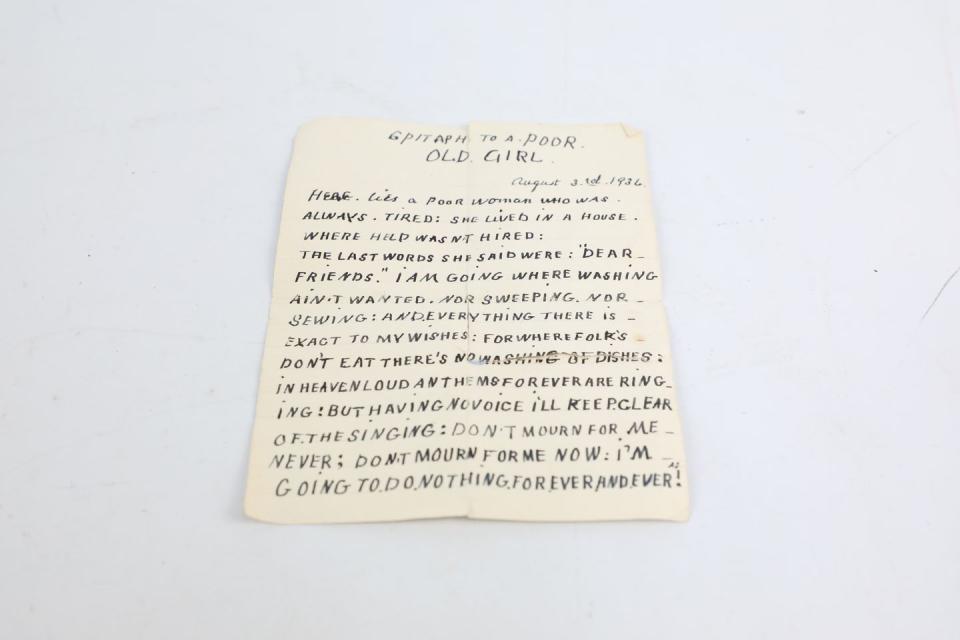 EPITAPH TO A. POOR.
OLD. GIRL.
August 3.rd. 1936.
HERE. Lies a POOR WOMAN WHO WAS.
ALWAYS. TIRED: SHE LIVED IN A HOUSE.
WHERE HELP WASN'T HIRED:
THE LAST WORDS SHE SAID WERE: "DEAR_
FRIENDS." I AM GOING WHERE WASHING
AIN'T WANTED. NOR SWEEPING. NOR_
SEWING: AND.EVERYTHING THERE IS_
EXACT TO MY WISHES: FOR WHERE FOLK'S
DON'T EAT THERE'S NO WASHING OF DISHES:
IN HEAVEN LOUD ANTHEMS FOREVER ARE RING_
ING: BUT HAVING NO VOICE I'LL KEEP.CLEAR
OF.THE SINGING: DON'T MOURN FOR ME_
NEVER; DON'T MOURN FOR ME NOW: I'M_
GOING TO.DO.NOTHING.FOR EVER AND.EVER!